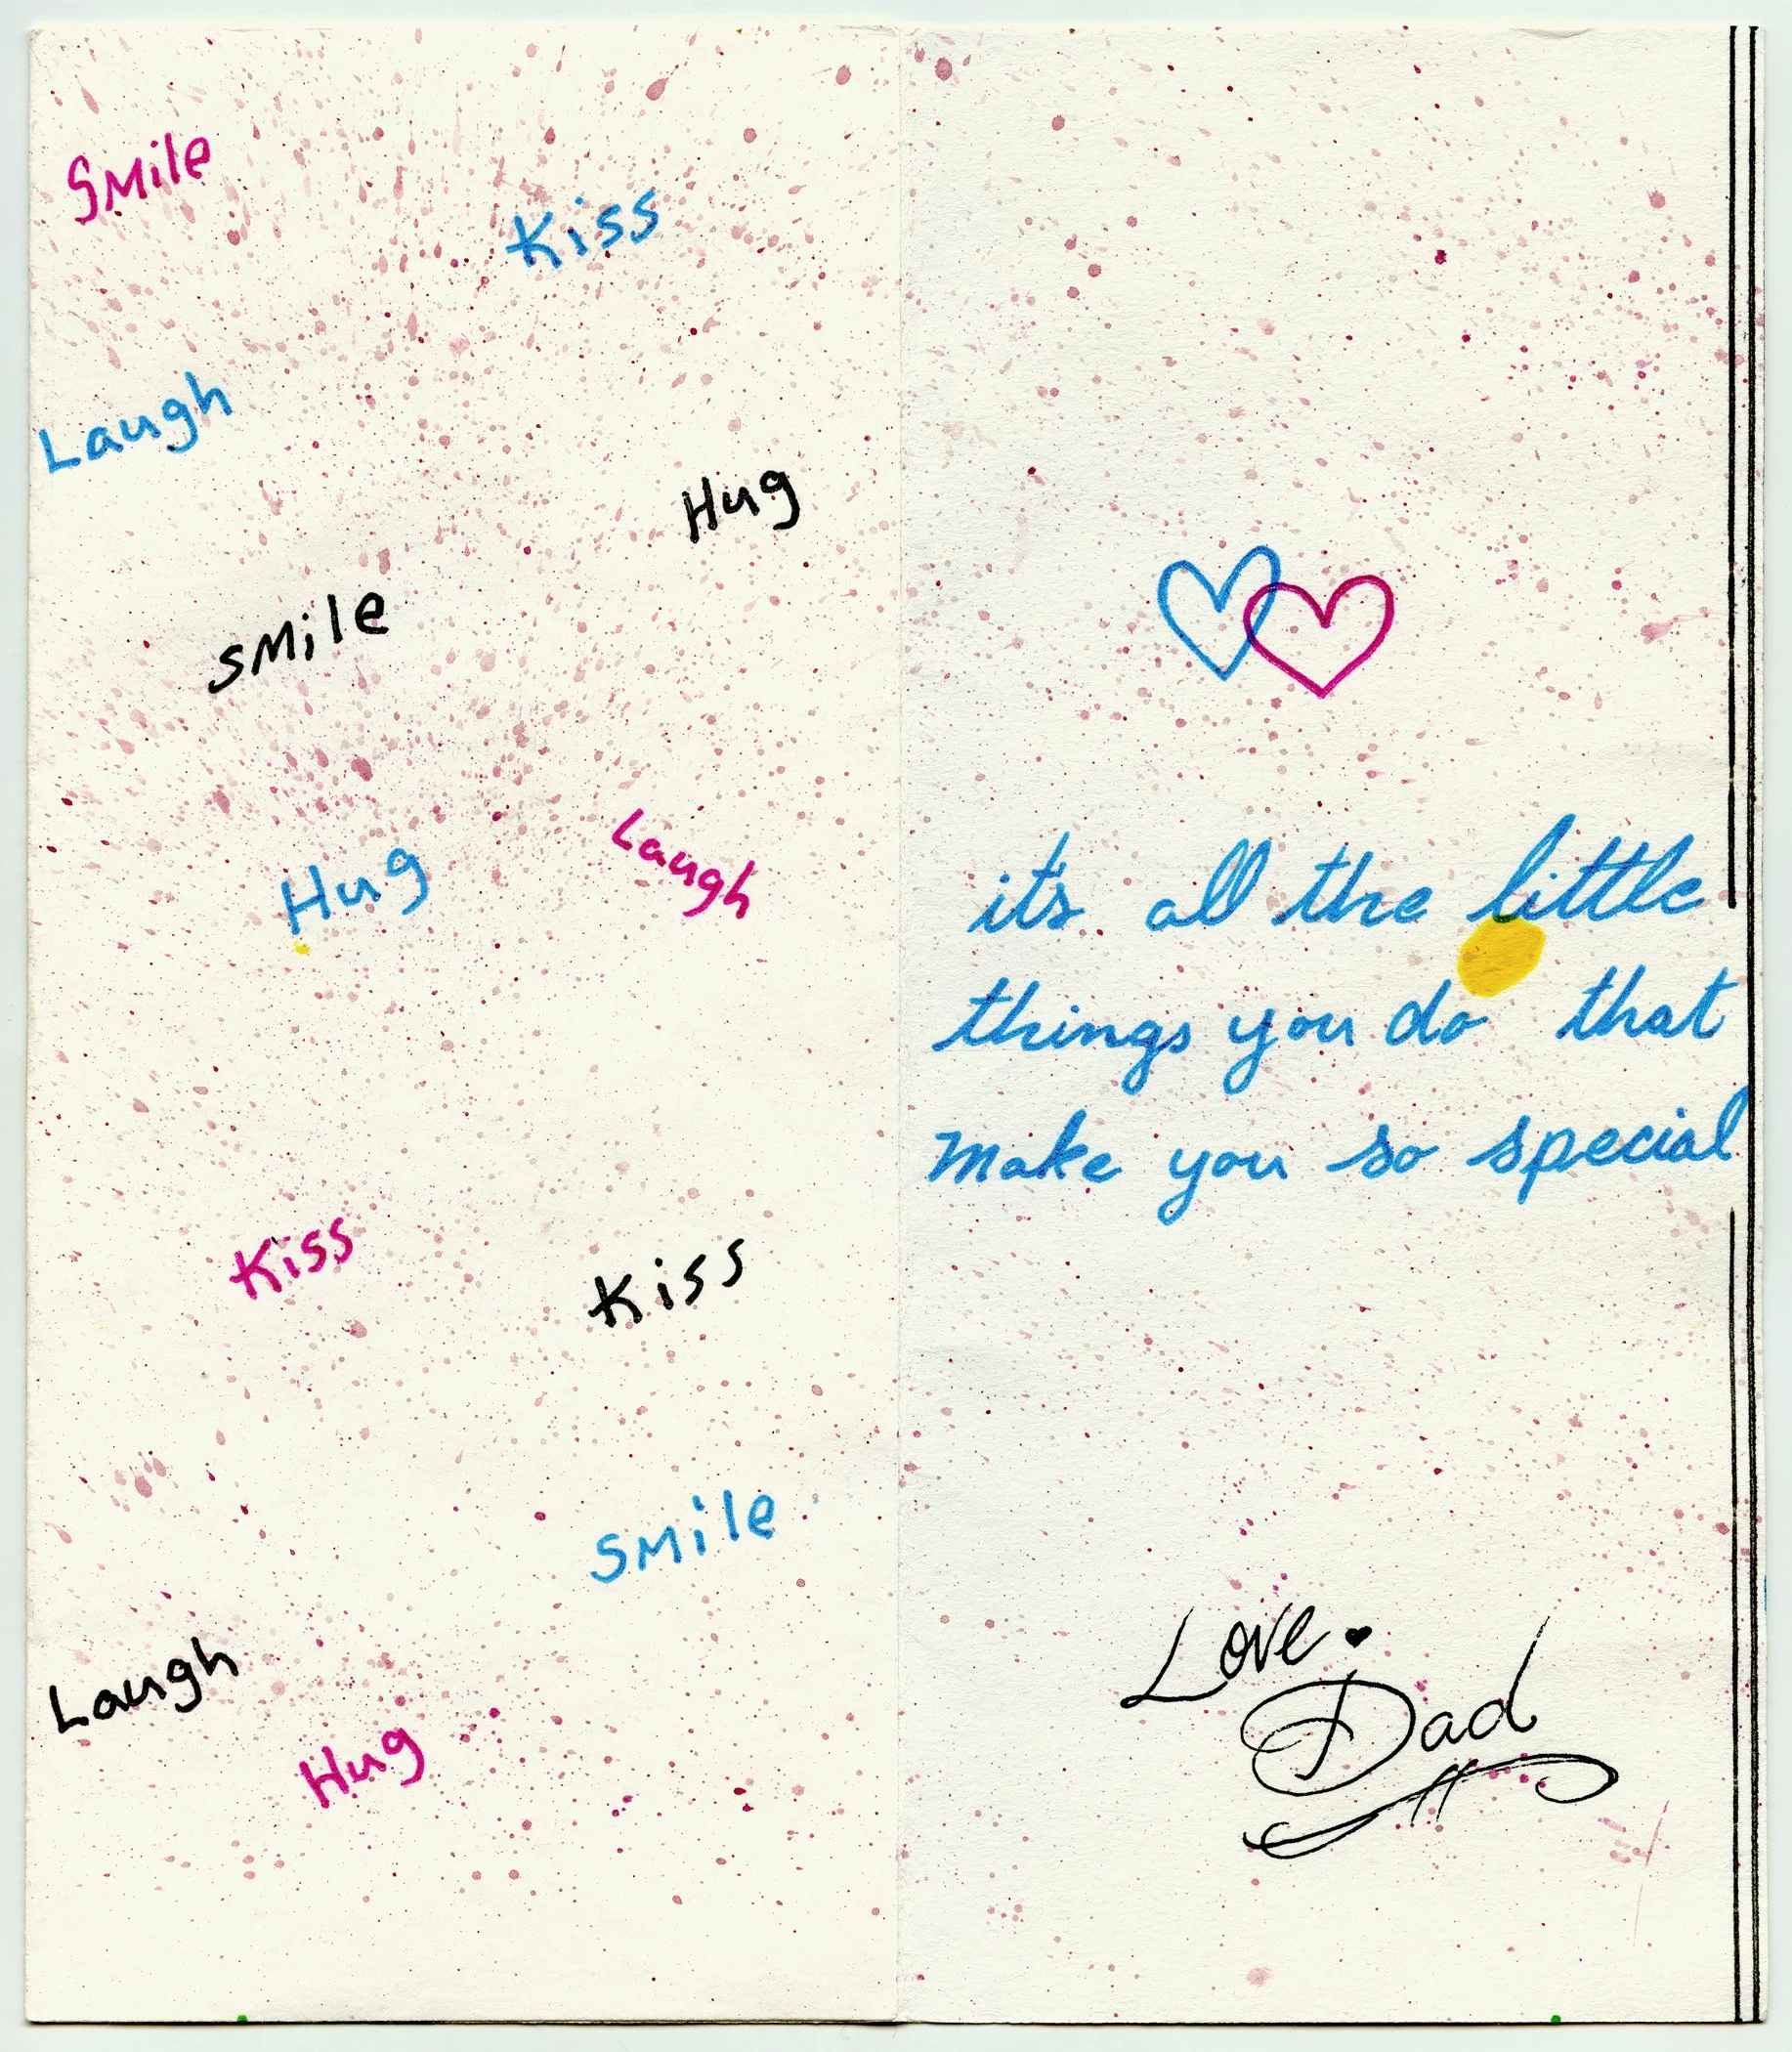 SMile
Kiss
Laugh
Hug
sMile
Hug
Laugh
Kiss
Kiss
SMile
Laugh
Hug
it's all the little
things you do that
make you so special
Love
Dad